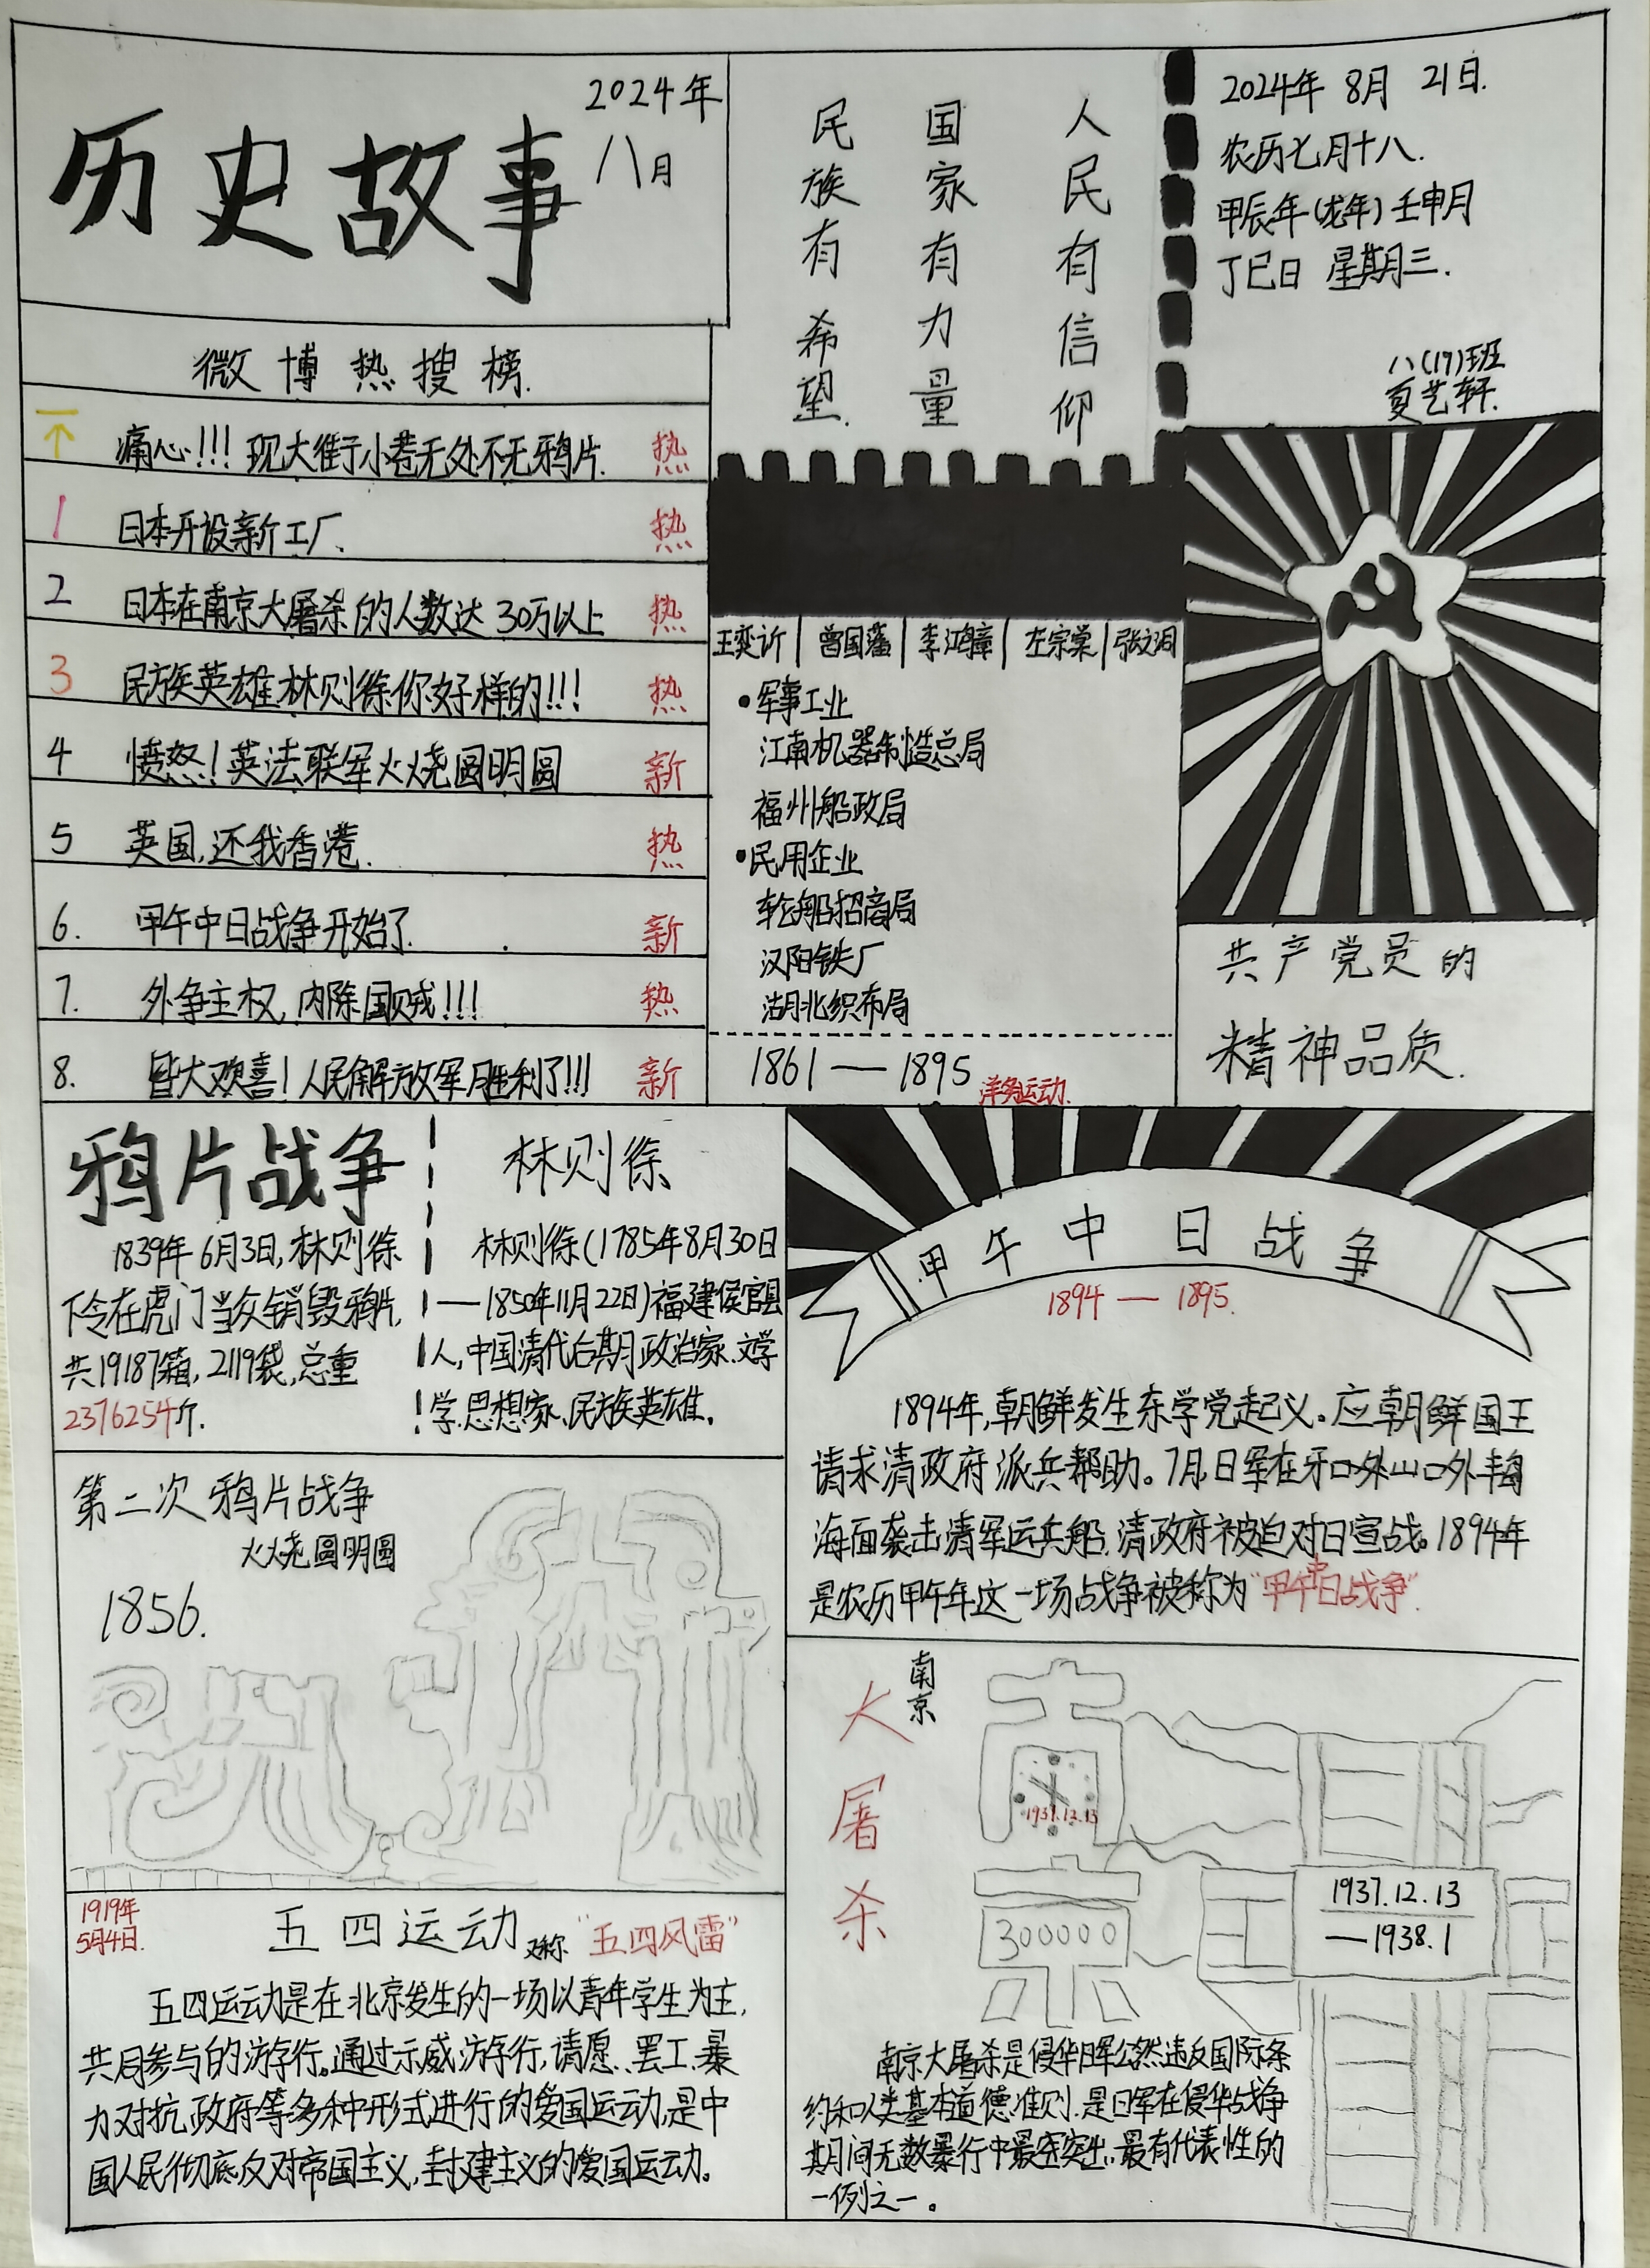 历史故事
2024年
八月
人民有信仰
国家有力量
民族有希望.
2024年 8月 21日.
农历七月十八.
甲辰年(龙年)壬申月
丁巳日 星期三.
八(17)班
夏艺轩.
微博热搜榜.
痛心!!! 现大街小巷无处不无鸦片. 热
1 日本开设新工厂. 热
2 日本在南京大屠杀的人数达30万以上 热
3 民族英雄林则徐你好样的!!! 热
4 愤怒!英法联军火烧圆明圆 新
5 英国,还我香港. 热
6. 甲午中日战争开始了. 新
7. 外争主权,内除国贼!!! 热
8. 皆大欢喜!人民解放军胜利了!!! 新
王奕䜣|曾国藩|李鸿章|左宗棠|张之洞
•军事工业
江南机器制造总局
福州船政局
•民用企业
轮船招商局
汉阳铁厂
湖北织布局
1861—1895 洋务运动.
共产党员的
精神品质.
鸦片战争
1839年6月3日,林则徐
下令在虎门当众销毁鸦片,
共19187箱,2119袋,总重
2376254斤.
林则徐
林则徐(1785年8月30日
—1850年11月22日)福建侯官县
人,中国清代后期政治家.文学
学.思想家.民族英雄.
甲午中日战争
1894—1895.
1894年,朝鲜发生东学党起义。应朝鲜国王
请求清政府派兵帮助。7月,日军在牙口外山口外丰岛
海面袭击清军运兵船,清政府被迫对日宣战。1894年
是农历甲午年这一场战争被称为“甲午中日战争”.
第二次鸦片战争
火烧圆明圆
1856.
南京
大屠杀
1937.12.13
300000
1937.12.13
—1938.1
南京大屠杀是侵华日军公然违反国际条
约和人类基本道德准则.是日军在侵华战争
期间无数暴行中最突出.最有代表性的
一例之一。
1919年
5月4日.
五四运动 又称 “五四风雷”
五四运动是在北京发生的一场以青年学生为主,
共同参与的游行。通过示威游行,请愿、罢工.暴
力对抗政府等多种形式进行的爱国运动,是中
国人民彻底反对帝国主义,封建主义的爱国运动。